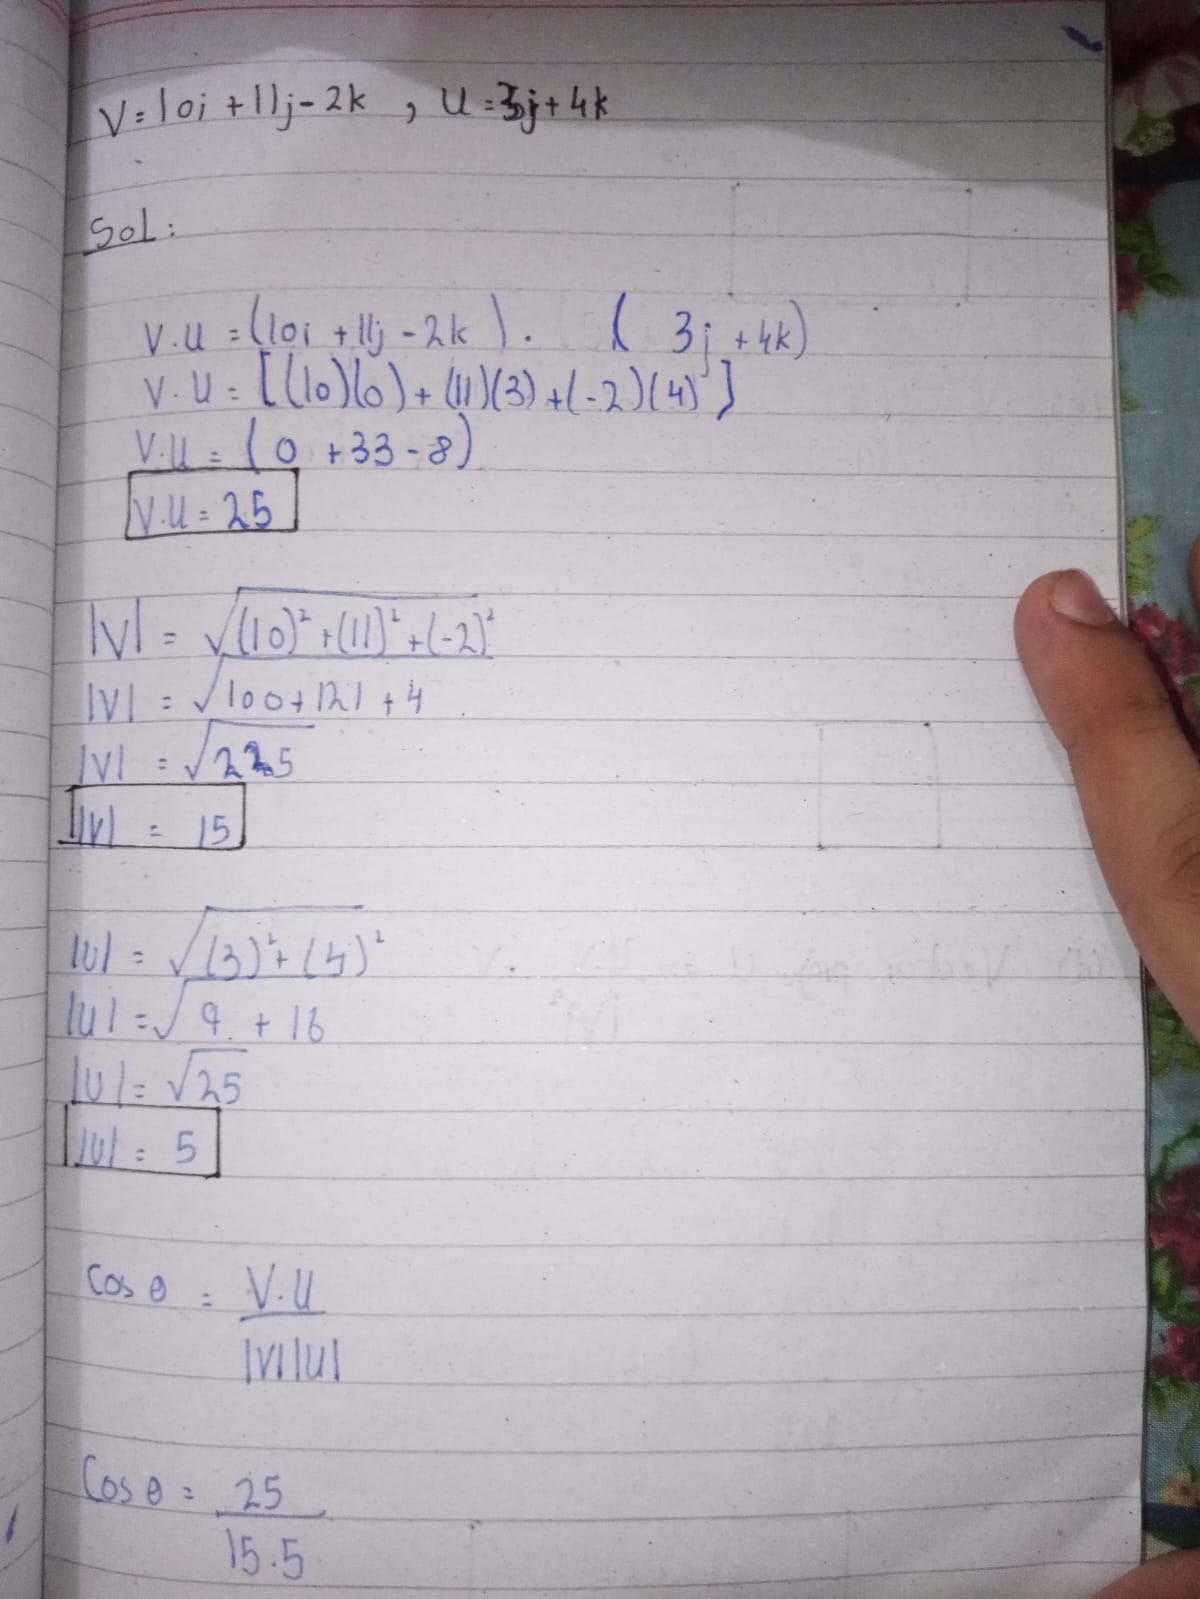 V = 10i + 11j - 2k , U = 3j + 4k
Sol:
V.U = (10i + 11j - 2k). ( 3j + 4k)
V.U = [(10)(0) + (11)(3) + (-2)(4)]
V.U = (0 + 33 - 8)
V.U = 25
|V| = √(10)² + (11)² + (-2)²
|V| = √100 + 121 + 4
|V| = √225
|V| = 15
|U| = √(3)² + (4)²
|U| = √9 + 16
|U| = √25
|U| = 5
Cos θ = V.U
|V||U|
Cos θ = 25
15.5